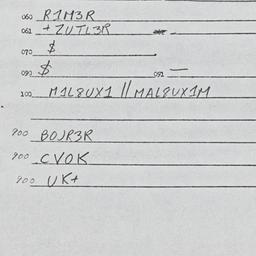 060 R1M3R
061 +ZUTL3R
070 $
090 $ 091 —
100 M1L8UX1 // MAL8UX1M
900 BOJR3R
900 CVOK
900 UK+